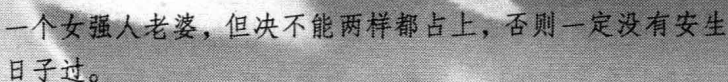 一个女强人老婆，但决不能两样都占上，否则一定没有安生
日子过。